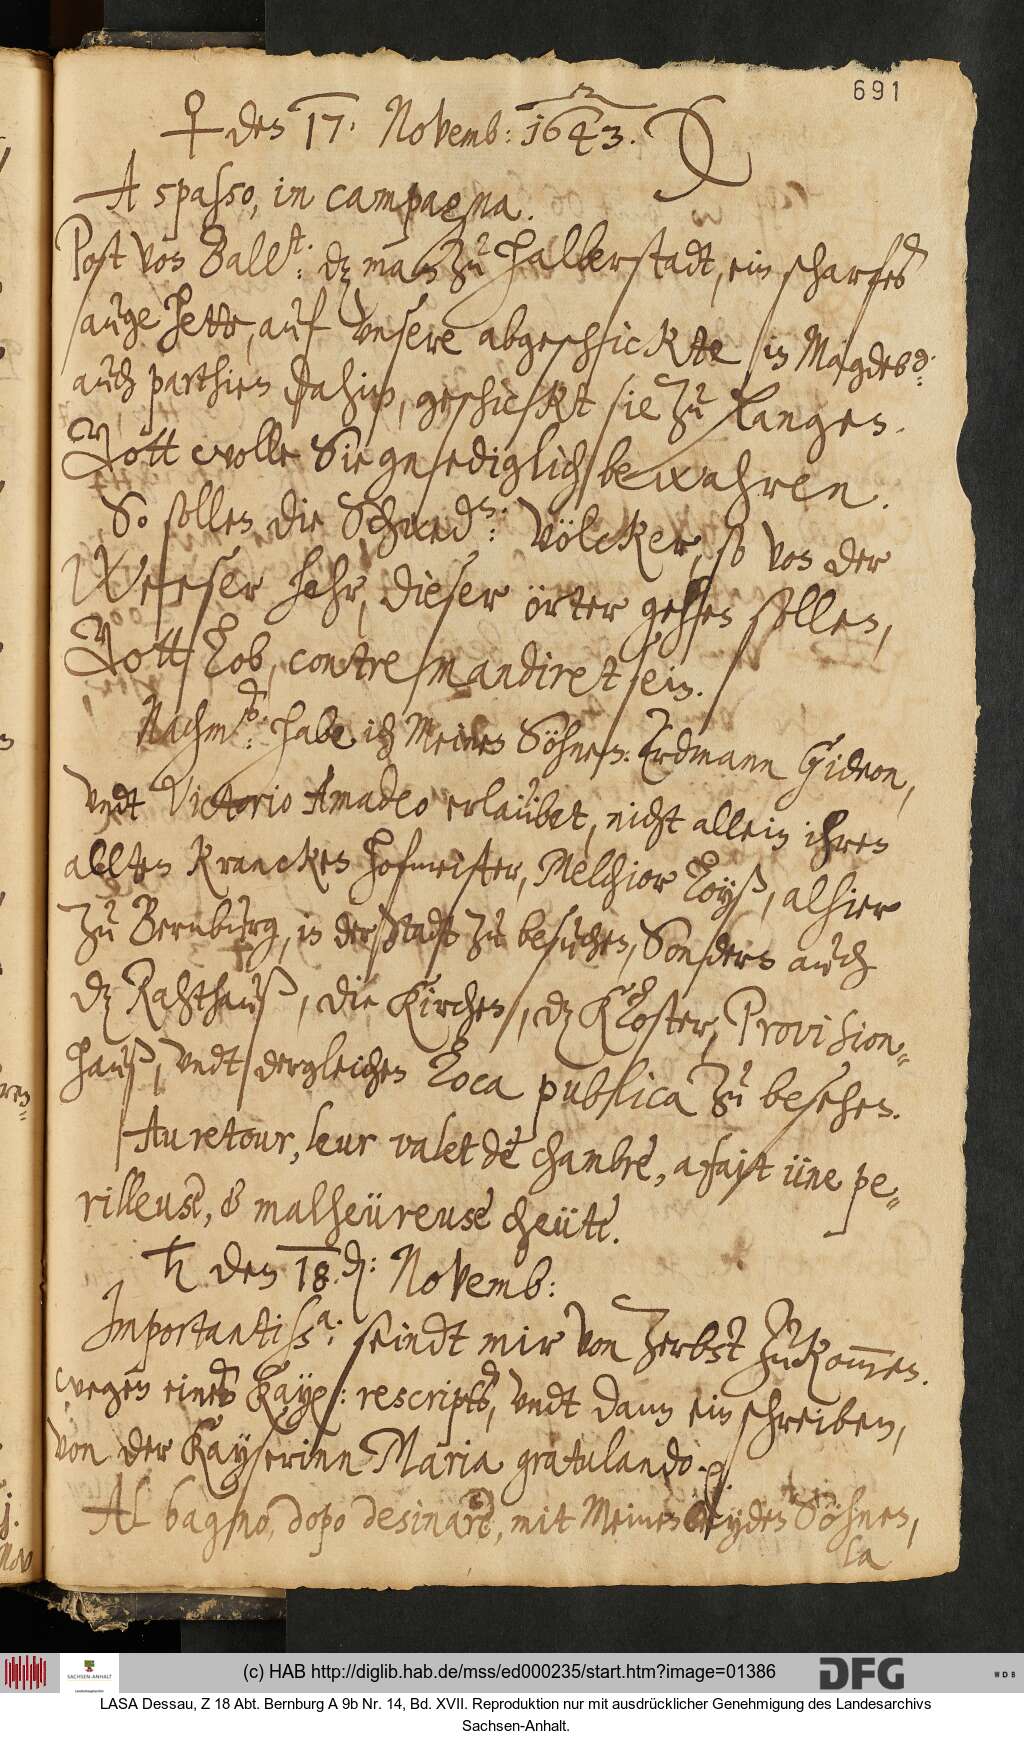 691
♀ den 17. Novemb: 1643.
A spasso, in campagna.
Post von Ball<sup>t.</sup>: dz man zu Halberstadt, ein scharfes
auge hette, auf unsere abgeschickte in Magdeb<sup>g.</sup>:
auch parthien dahin, geschickt sie zu fangen.
Gott wolle Sie gnediglich bewahren.
So sollen die Schwed<sup>n.</sup>: Völcker, so von der
Weser hehr, dieser örter gehen sollen,
Gott lob, contremandiret sein.
Nachm: habe ich Meinen Söhnen: Erdmann Gideon,
undt Victorio Amadeo erlaübet, nicht allein ihren
allten krancken Hofmeister, Melchior Loyß, alhier
zu Bernburg, in der Stadt zu besuchen, Sondern auch
dz Rahthauß, die Kirchen, dz Kloster, Provision-
hauß, undt dergleichen Loca publica zu besehen.
Au retour, leur valet de chambre, a fait üne pe-
rilleuse, & malheüreuse cheüte.
♄ den 18. d: Novemb:
Importantiss<sup>a.</sup>: seindt mir von Zerbst zukommen.
wegen eines Kays: rescripts, undt dann ein schreiben,
von der Kayserinn Maria gratulando.
Al bagno, dopo desinare, mit Meinen beyden Söhnen,
la
(c) HAB http://diglib.hab.de/mss/ed000235/start.htm?image=01386
SACHSEN-ANHALT
DFG
WDB
LASA Dessau, Z 18 Abt. Bernburg A 9b Nr. 14, Bd. XVII. Reproduktion nur mit ausdrücklicher Genehmigung des Landesarchivs
Sachsen-Anhalt.